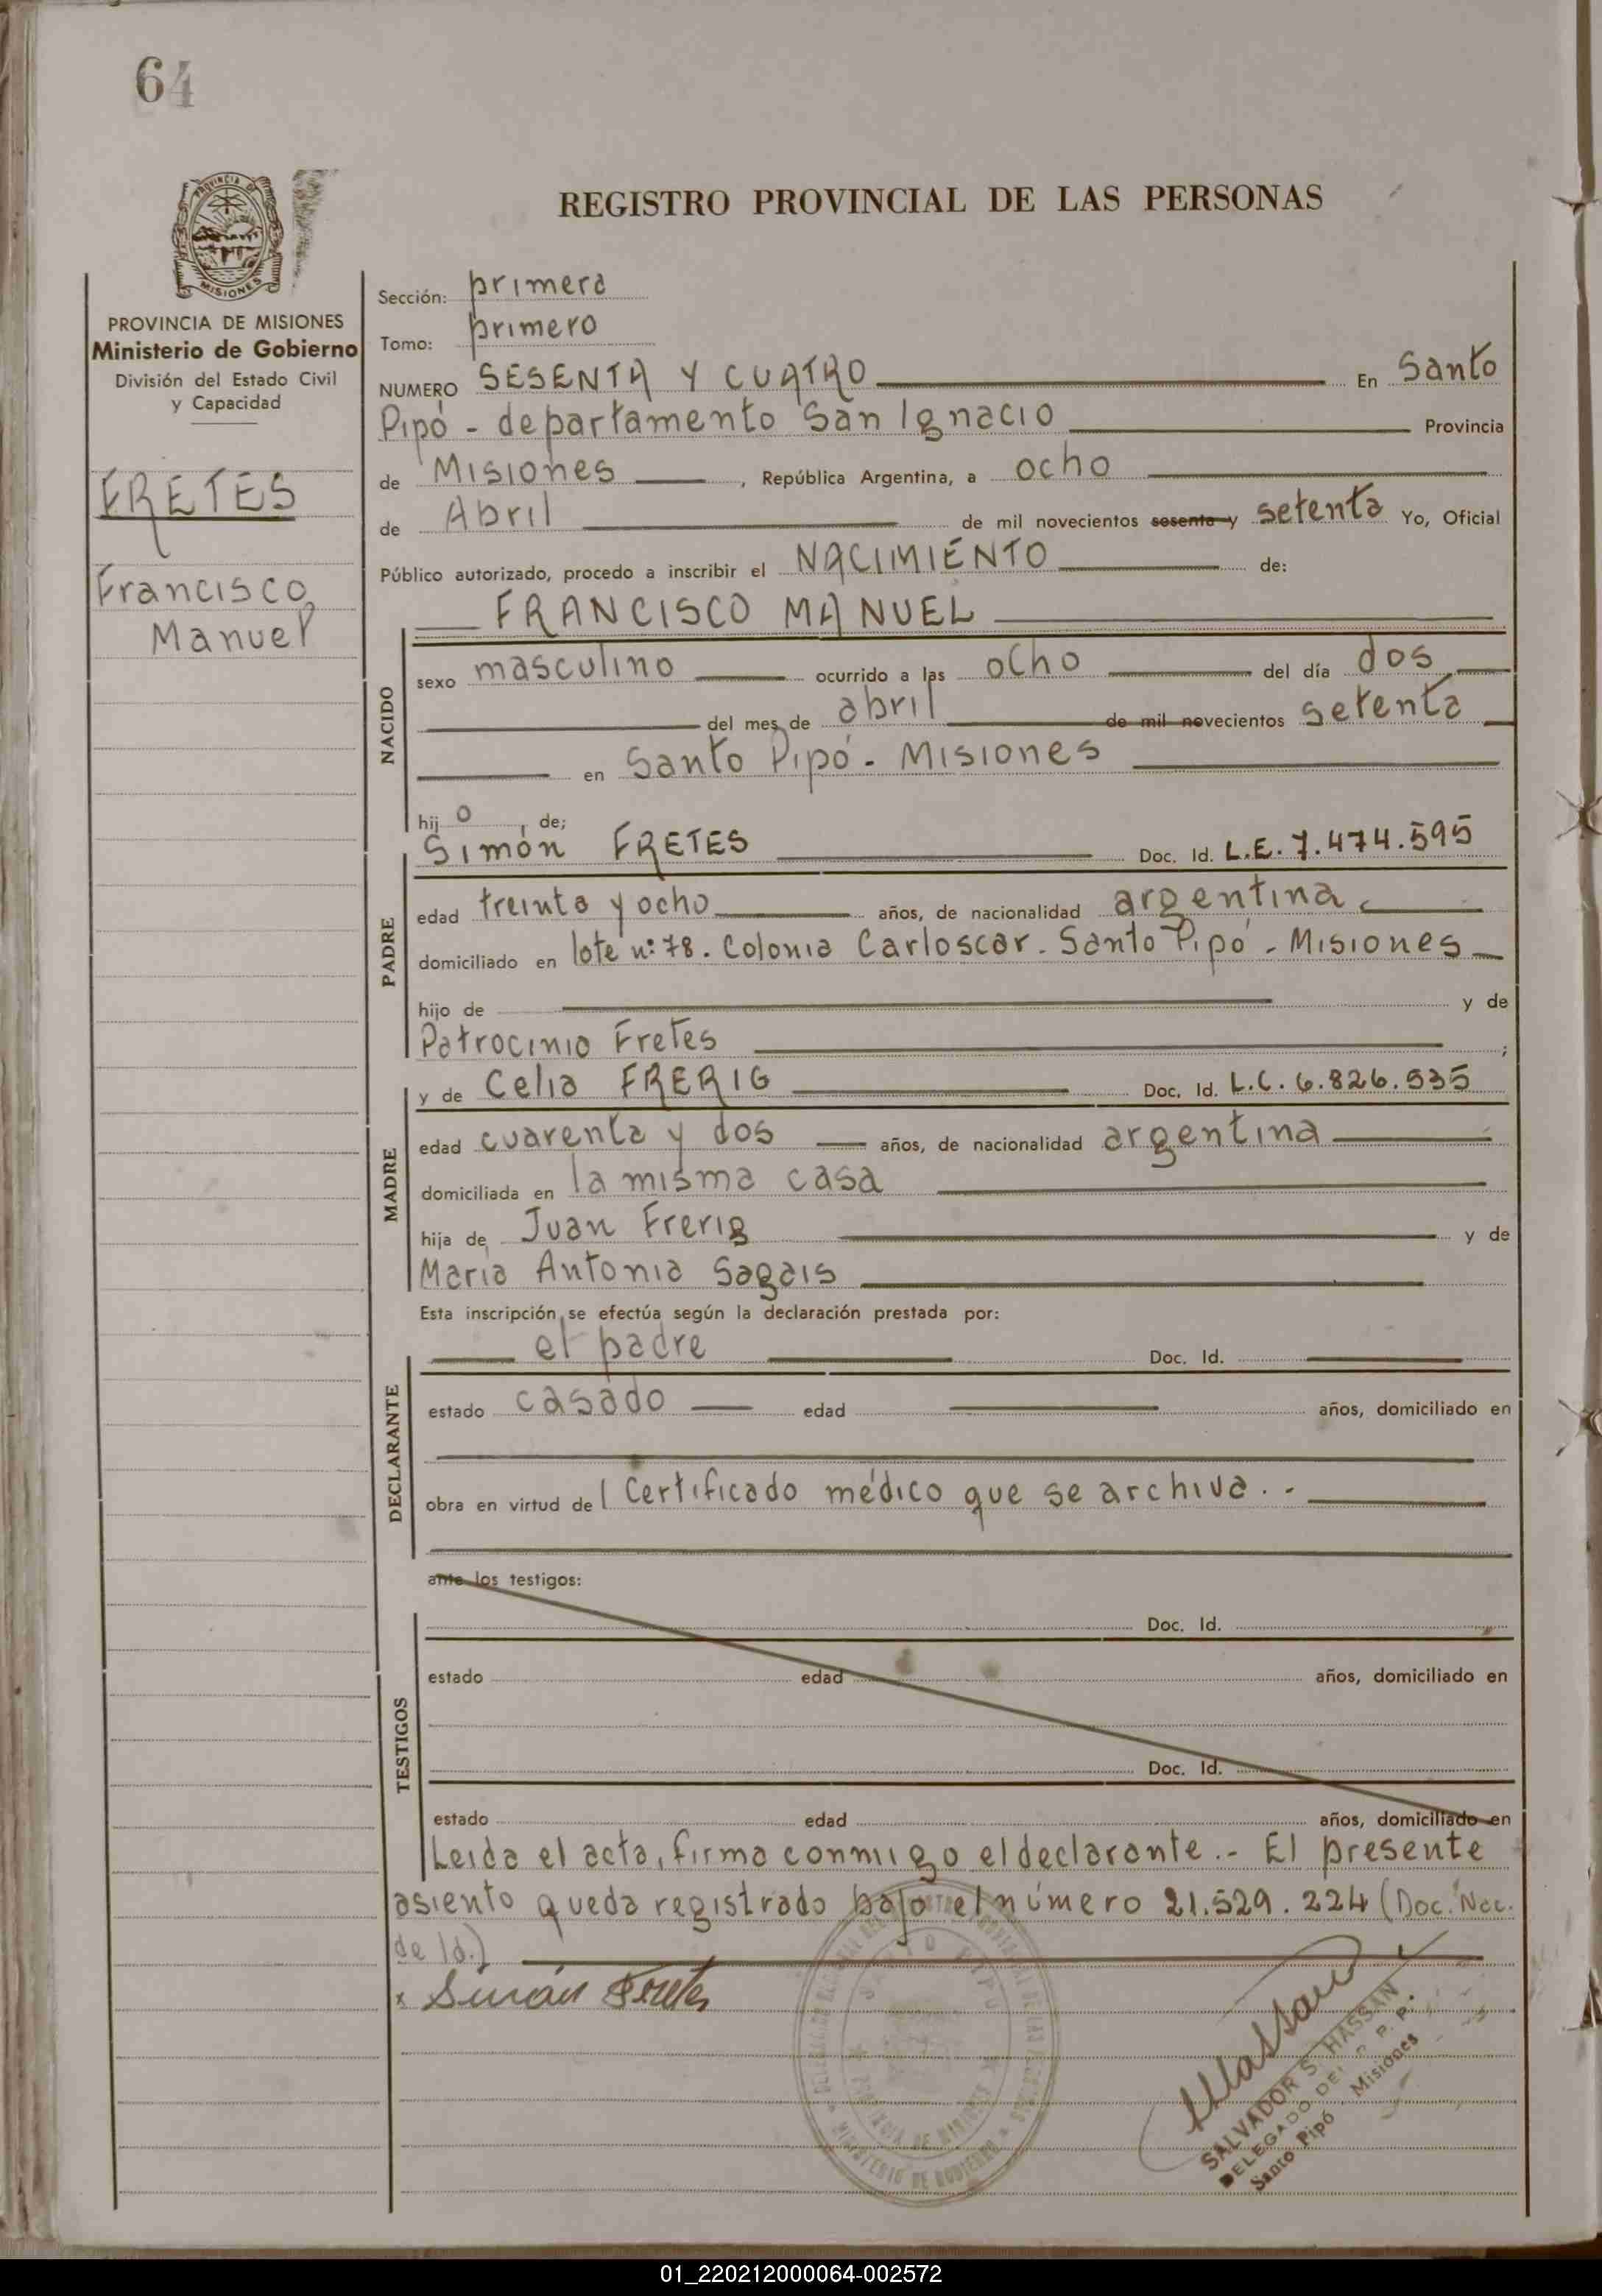 64
REGISTRO PROVINCIAL DE LAS PERSONAS
PROVINCIA DE
MISIONES
PROVINCIA DE MISIONES
Ministerio de Gobierno
División del Estado Civil
y Capacidad
FRETES
Francisco
Manuel
Sección: primera
Tomo: primero
NUMERO SESENTA Y CUATRO En Santo
Pipó - departamento San Ignacio Provincia
de Misiones, República Argentina, a ocho
de Abril de mil novecientos sesenta y setenta Yo, Oficial
Público autorizado, procedo a inscribir el NACIMIENTO de:
FRANCISCO MANUEL
NACIDO
sexo masculino ocurrido a las ocho del día dos
del mes de abril de mil novecientos setenta
en Santo Pipó - Misiones
hij o, de;
PADRE
Simón FRETES Doc. Id. L.E. 7.474.595
edad treinta y ocho años, de nacionalidad argentina
domiciliado en lote n: 78. Colonia Carloscar - Santo Pipó - Misiones
hijo de y de
Patrocinio Fretes ;
MADRE
y de Celia FRERIG Doc. Id. L.C. 6.826.535
edad cuarenta y dos años, de nacionalidad argentina
domiciliada en la misma casa
hija de Juan Frerig y de
Maria Antonia Sagais
Esta inscripción se efectúa según la declaración prestada por:
DECLARANTE
el padre Doc. Id.
estado casado edad años, domiciliado en
obra en virtud del Certificado médico que se archiva . -
ante los testigos:
TESTIGOS
Doc. Id.
estado edad años, domiciliado en
Doc. Id.
estado edad años, domiciliado en
Leida el acta, firma conmigo el declarante .- El presente
asiento queda registrado bajo el número 21.529.224 (Doc. Nac.
de Id.)
x Simón Fretes
SANTO PIPO
PROVINCIA DE MISIONES
MINISTERIO DE GOBIERNO
SALVADOR S. HASSAN
DELEGADO DEL R. P. P.
Santo Pipó - Misiones
01_220212000064-002572